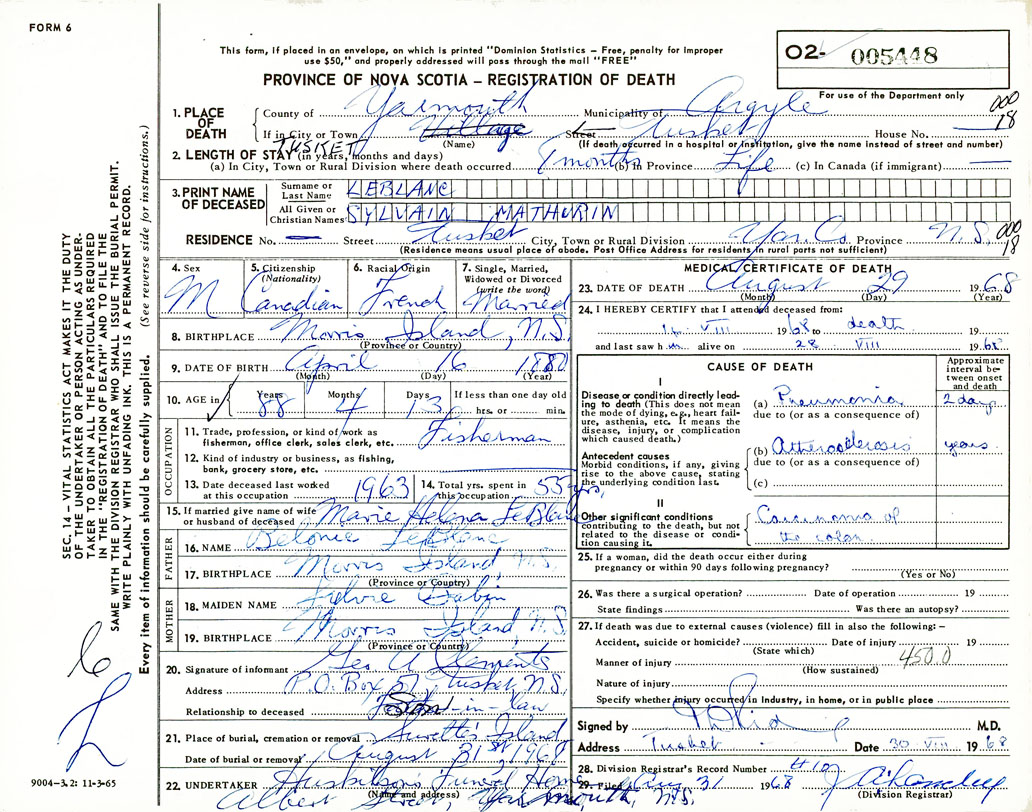 FORM 6
This form, if placed in an envelope, on which is printed "Dominion Statistics – Free, penalty for improper
use $50," and properly addressed will pass through the mail "FREE"
PROVINCE OF NOVA SCOTIA – REGISTRATION OF DEATH
O2- 005448
For use of the Department only
000
18
1. PLACE OF DEATH
County of Yarmouth Municipality of Argyle
If in City or Town Village Street Tusket House No.
TUSKET (Name) (If death occurred in a hospital or Institution, give the name instead of street and number)
2. LENGTH OF STAY (in years, months and days)
(a) In City, Town or Rural Division where death occurred 7 months (b) in Province Life (c) In Canada (if immigrant)
3. PRINT NAME OF DECEASED
Surname or Last Name LEBLANC
All Given or Christian Names SYLVAIN MATHURIN
RESIDENCE No. Street Tusket City, Town or Rural Division Yar. Co. Province N.S.
000
18
(Residence means usual place of abode. Post Office Address for residents in rural parts not sufficient)
4. Sex M
5. Citizenship (Nationality) Canadian
6. Racial Origin French
7. Single, Married, Widowed or Divorced (write the word) Married
8. BIRTHPLACE Morris Island, N.S.
(Province or Country)
9. DATE OF BIRTH April 16 1880
(Month) (Day) (Year)
10. AGE in Years 88 Months 4 Days 13 If less than one day old
hrs. or min.
OCCUPATION
11. Trade, profession, or kind of work as
fisherman, office clerk, sales clerk, etc. Fisherman
12. Kind of industry or business, as fishing,
bank, grocery store, etc.
13. Date deceased last worked
at this occupation 1963
14. Total yrs. spent in
this occupation 55 yrs.
15. If married give name of wife
or husband of deceased Marie Helena LeBlanc
FATHER
16. NAME Belonie LeBlanc
17. BIRTHPLACE Morris Island, N.S.
(Province or Country)
MOTHER
18. MAIDEN NAME
19. BIRTHPLACE Morris Island, N.S.
(Province or Country)
20. Signature of informant Geo A Clements
Address P.O. Box 57, Tusket, N.S.
Relationship to deceased Son-in-law
21. Place of burial, cremation or removal Surette's Island
Date of burial or removal August 31st, 1968
22. UNDERTAKER Huskilson's Funeral Home
(Name and address)
Albert Street, Yarmouth, N.S.
MEDICAL CERTIFICATE OF DEATH
23. DATE OF DEATH August 29 1968
(Month) (Day) (Year)
24. I HEREBY CERTIFY that I attended deceased from:
VIII 1968 to death 19
and last saw him alive on 28 VIII 1968
CAUSE OF DEATH
Approximate interval between onset and death
I
Disease or condition directly leading to death (This does not mean the mode of dying, e.g., heart failure, asthenia, etc. It means the disease, injury, or complication which caused death.)
(a) Pneumonia 2 days
due to (or as a consequence of)
Antecedent causes
Morbid conditions, if any, giving rise to the above cause, stating the underlying condition last.
(b) Atherosclerosis years
due to (or as a consequence of)
(c)
II
Other significant conditions
contributing to the death, but not related to the disease or condition causing it.
Carcinoma of
the colon
25. If a woman, did the death occur either during
pregnancy or within 90 days following pregnancy?
(Yes or No)
26. Was there a surgical operation? Date of operation 19
State findings Was there an autopsy?
27. If death was due to external causes (violence) fill in also the following: –
Accident, suicide or homicide? Date of injury 19
(State which)
Manner of injury 450.0
(How sustained)
Nature of injury
Specify whether injury occurred in Industry, in home, or in public place
Signed by M.D.
Address Tusket Date 30 VIII 1968
28. Division Registrar's Record Number
29. Filed Aug 31 1968
(Division Registrar)
SEC. 14 – VITAL STATISTICS ACT MAKES IT THE DUTY
OF THE UNDERTAKER OR PERSON ACTING AS UNDER-
TAKER TO OBTAIN ALL THE PARTICULARS REQUIRED
IN THE "REGISTRATION OF DEATH" AND TO FILE THE
SAME WITH THE DIVISION REGISTRAR WHO SHALL ISSUE THE BURIAL PERMIT.
WRITE PLAINLY WITH UNFADING INK. THIS IS A PERMANENT RECORD.
Every item of information should be carefully supplied. (See reverse side for instructions.)
9004–3.2: 11-3-65